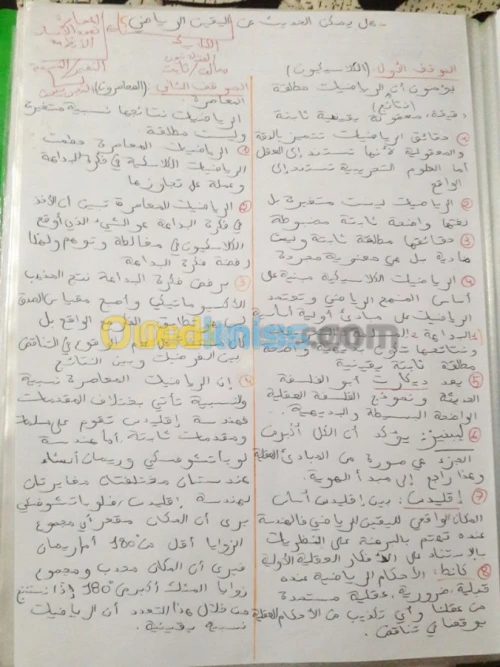 - هل يمكن الحديث عن اليقين الرياضي؟
الكلاسيك
مطلق/ثابت
المعاصرة
تعدد الأنساق
النسبي/المتغير
الموقف الأول: (الكلاسيكيون)
يزعمون أن الرياضيات مطلقة
(نتائج)
دقيقة، معقولة يقينية ثابتة
① حقائق الرياضيات تتميز بالدقة
والمعقولية لأنها تستند إلى العقل
أما العلوم التجريبية تستند إلى
الواقع
② الرياضيات ليست متغيرة بل
لغتها واضحة ثابتة مضبوطة
③ حقائقها مطلقة ثابتة وليست
مادية بل هي معنوية مجردة
④ الرياضيات الكلاسيكية مبنية على
أساس المنهج الرياضي وتعتمد
الرياضيات على مبادئ أولية أساسية
ونتائجها تكون يقينية واضحة
مطلقة ثابتة يقينية
⑤ يعد ديكارت أبو الفلسفة
الحديثة ونموذج الفلسفة العقلية
الواضحة البسيطة والبديهية...
⑥ ليبنيز: يؤكد أن الكل أكبر من
الجزء هي صورة من المبادئ العقلية
وهذا راجع إلى مبدأ الهوية.
⑦ إقليدس: بين إقليدس أساس
المكان الواقعي لليقين الرياضي فالهندسة
عنده تهتم بالبرهنة على النظريات
بالاستناد على الأفكار العقلية الأولية
⑧ كانط: الأحكام الرياضية عنده
قبلية، ضرورية، عقلية مستمدة
من عقلنا وأي تكذيب من الأحكام العقلية
يوقعنا في تناقض.
الموقف الثاني: (المعاصرون)
المعاصرة
الرياضيات نتائجها نسبية متغيرة
وليست مطلقة
① الرياضيات المعاصرة حطمت
الرياضيات الكلاسيكية في فكرة البداهة
وعملة على تجاوزها
② الرياضيات المعاصرة تبين أن الأخذ
في فكرة البداهة هو الشيء الذي أوقع
الكلاسيكيون في مغالطة وتوهم ولهذا
رفضة فكرة البداهة
③ برفض فكرة البداهة نتج المذهب
الأكسيوماتيكي وأصبح مقياس الصدق
ليس تطابق النتائج الواقع بل
عدم الوقوع في التناقض
بين الفرضيات وبين النتائج
④ إن الرياضيات المعاصرة نسبية
والنسبية تأتي بختلاف المقدمات
فهندسة إقليدس تقوم على مسلمات
ومقدمات ثابتة. أما هندسة
لوباتشوفسكي وريمان أنشاء
هندستان مختلفتان مغايرتان
لهندسة إقليدس، فلوباتشوفسكي
يرى أن المكان مقعر أي مجموع
الزوايا أقل من 180° أما ريمان
فيرى أن المكان محدب ومجموع
زوايا المثلث أكبر من 180° إذا نستنتج
من خلال هذا التعدد أن الرياضيات
نسبية يقينية.
Ouedkniss.com